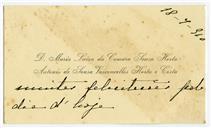 18-7-910
D. Maria Luiza da Camara Sousa Horta
Antonio de Sousa Vasconcellos Horta e Costa
muitas felicitações pelo
dia d'hoje